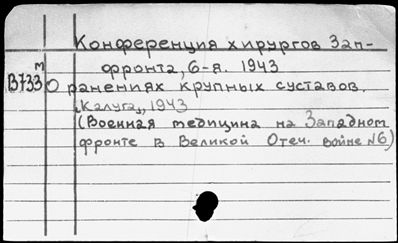 Конференция хирургов Зап-
фронта, 6-я. 1943
м
В733 О ранениях крупных суставов.
Калуга, 1943
(Военная медицина на Западном
фронте в Великой Отеч. войне №6)